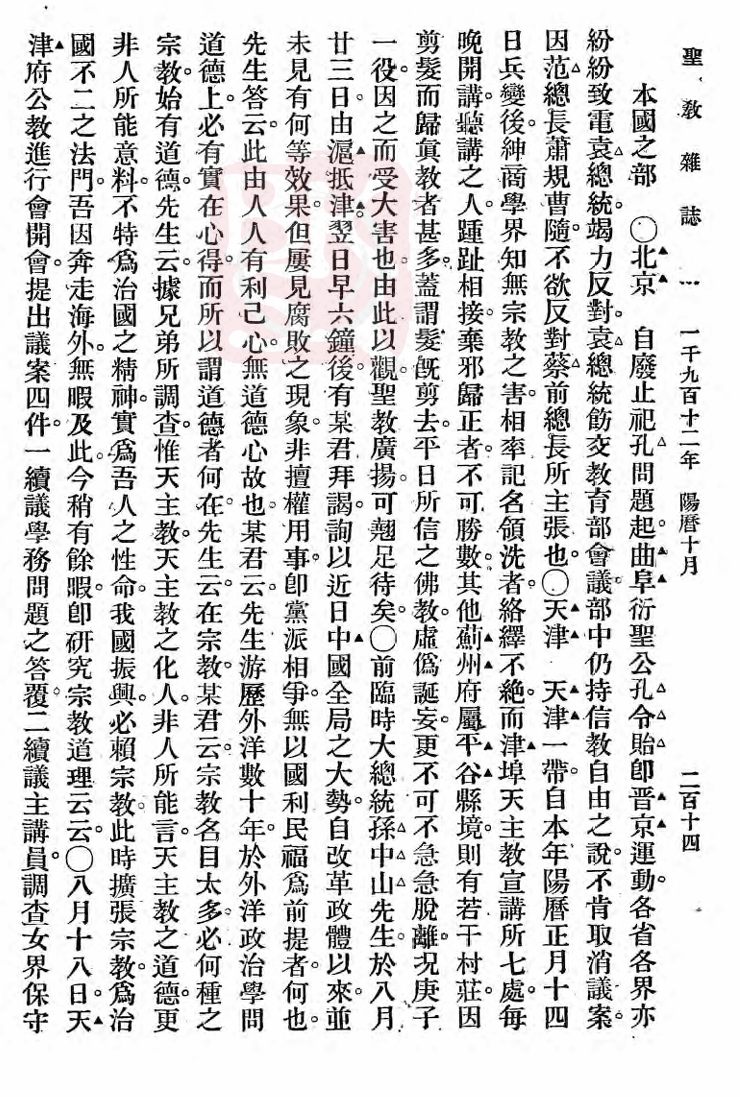 聖教雜誌…一千九百十二年 陽曆十月 二百十四
本國之部 〇北京 自廢止祀孔問題起。曲阜衍聖公孔令貽卽晉京運動。各省各界亦
紛紛致電袁總統。竭力反對。袁總統飭交教育部會議。部中仍持信教自由之說。不肯取消議案。
因范總長蕭規曹隨。不欲反對蔡前總長所主張也。〇天津 天津一帶。自本年陽曆正月十四
日兵變後。紳商學界知無宗教之害。相率記名領洗者。絡繹不絕。而津埠天主教宣講所七處。每
晚開講。聽講之人。踵趾相接。棄邪歸正者。不可勝數。其他薊州府屬平谷縣境。則有若干村莊。因
剪髮而歸眞教者甚多。蓋謂髮旣剪去。平日所信之佛教。虛僞誕妄。更不可不急急脫離。况庚子
一役。因之而受大害也。由此以觀。聖教廣揚。可翹足待矣。〇前臨時大總統孫中山先生。於八月
廿三日。由滬抵津。翌日早六鐘後。有某君拜謁。詢以近日中國全局之大勢。自改革政體以來。並
未見有何等效果。但屢見腐敗之現象。非擅權用事。卽黨派相爭。無以國利民福爲前提者。何也。
先生答云。此由人人有利己心。無道德心故也。某君云。先生游歷外洋數十年。於外洋政治學問
道德上。必有實在心得。而所以謂道德者何在。先生云。在宗教。某君云。宗教名目太多。必何種之
宗教。始有道德。先生云。據兄弟所調查。惟天主教。天主教之化人。非人所能言。天主教之道德。更
非人所能意料。不特爲治國之精神。實爲吾人之性命。我國振興。必賴宗教。此時擴張宗教。爲治
國不二之法門。吾因奔走海外。無暇及此。今稍有餘暇。卽研究宗教道理云云。〇八月十八日。天
津府公教進行會開會。提出議案四件。一續議學務問題之答覆。二續議主講員。調查女界保守